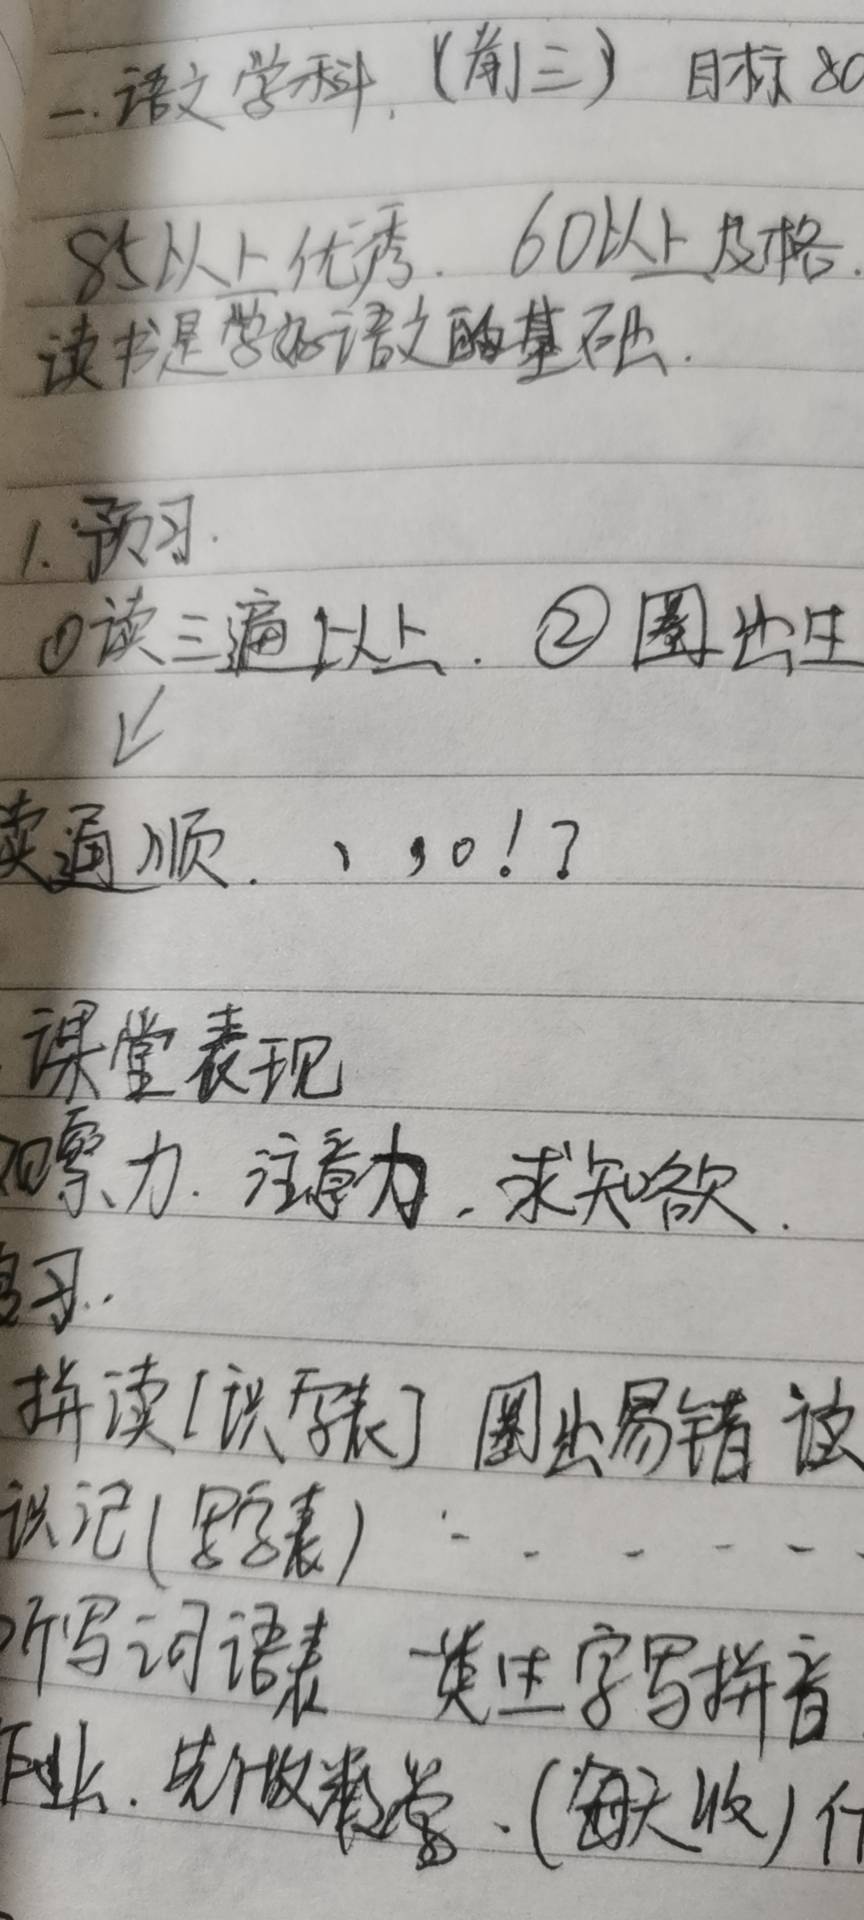 一.语文学科.(前三) 目标80
85以上优秀. 60以上及格.
读书是学好语文的基础.
1.预习.
①读三遍以上. ②圈出生
读通顺. 、，。！？
课堂表现
观察力.注意力.求知欲.
复习..
拼读[识字表] 圈出易错 读
识记(写字表) - - - - - -
听写词语表 类生字写拼音
作业.先做数学.(每天收)什